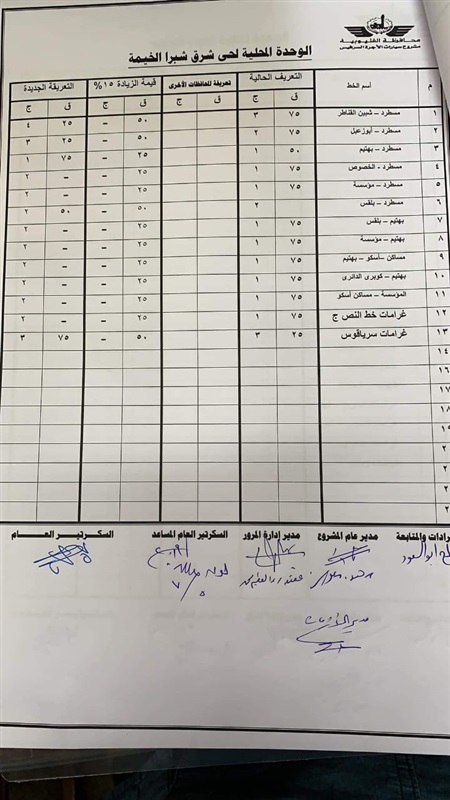 محافظة القليوبية
مشروع سيارات الأجرة السرفيس
الوحدة المحلية لحى شرق شبرا الخيمة
م أسم الخط التعريف الحالية تعريفة المحافظات الأخرى قيمة الزيادة ١٥% التعريفة الجديدة
ق ج ق ج ق ج ق ج
١ مسطرد – شبين القناطر ٧٥ ٣ ٥٠ – ٢٥ ٤
٢ مسطرد – أبوزعبل ٧٥ ٢ ٥٠ – ٢٥ ٣
٣ مسطرد – بهتيم ٥٠ ١ ٢٥ – ٧٥ ١
٤ مسطرد – الخصوص ٧٥ ١ ٢٥ – – ٢
٥ مسطرد – مؤسسة ٧٥ ١ ٢٥ – – ٢
٦ مسطرد – بلقس ٢ ٥٠ – ٥٠ ٢
٧ بهتيم – بلقس ٧٥ ١ ٢٥ – – ٢
٨ بهتيم – مؤسسة ٧٥ ١ ٢٥ – – ٢
٩ مساكن –أسكو – بهتيم ٧٥ ١ ٢٥ – – ٢
١٠ بهتيم – كوبرى الدائرى ٧٥ ١ ٢٥ – – ٢
١١ المؤسسة – مساكن أسكو ٧٥ ١ ٢٥ – – ٢
١٢ غرامات خط النص ج ٧٥ ١ ٢٥ – – ٢
١٣ غرامات سرياقوس ٢٥ ٣ ٥٠ – ٧٥ ٣
١٤
١٦
١٧
١٨
١٩
٢
٢
٢
٢
رادات والمتابعة مدير عام المشروع مدير إدارة المرور السكرتير العام المساعد السكرتير العام
ابو السعود